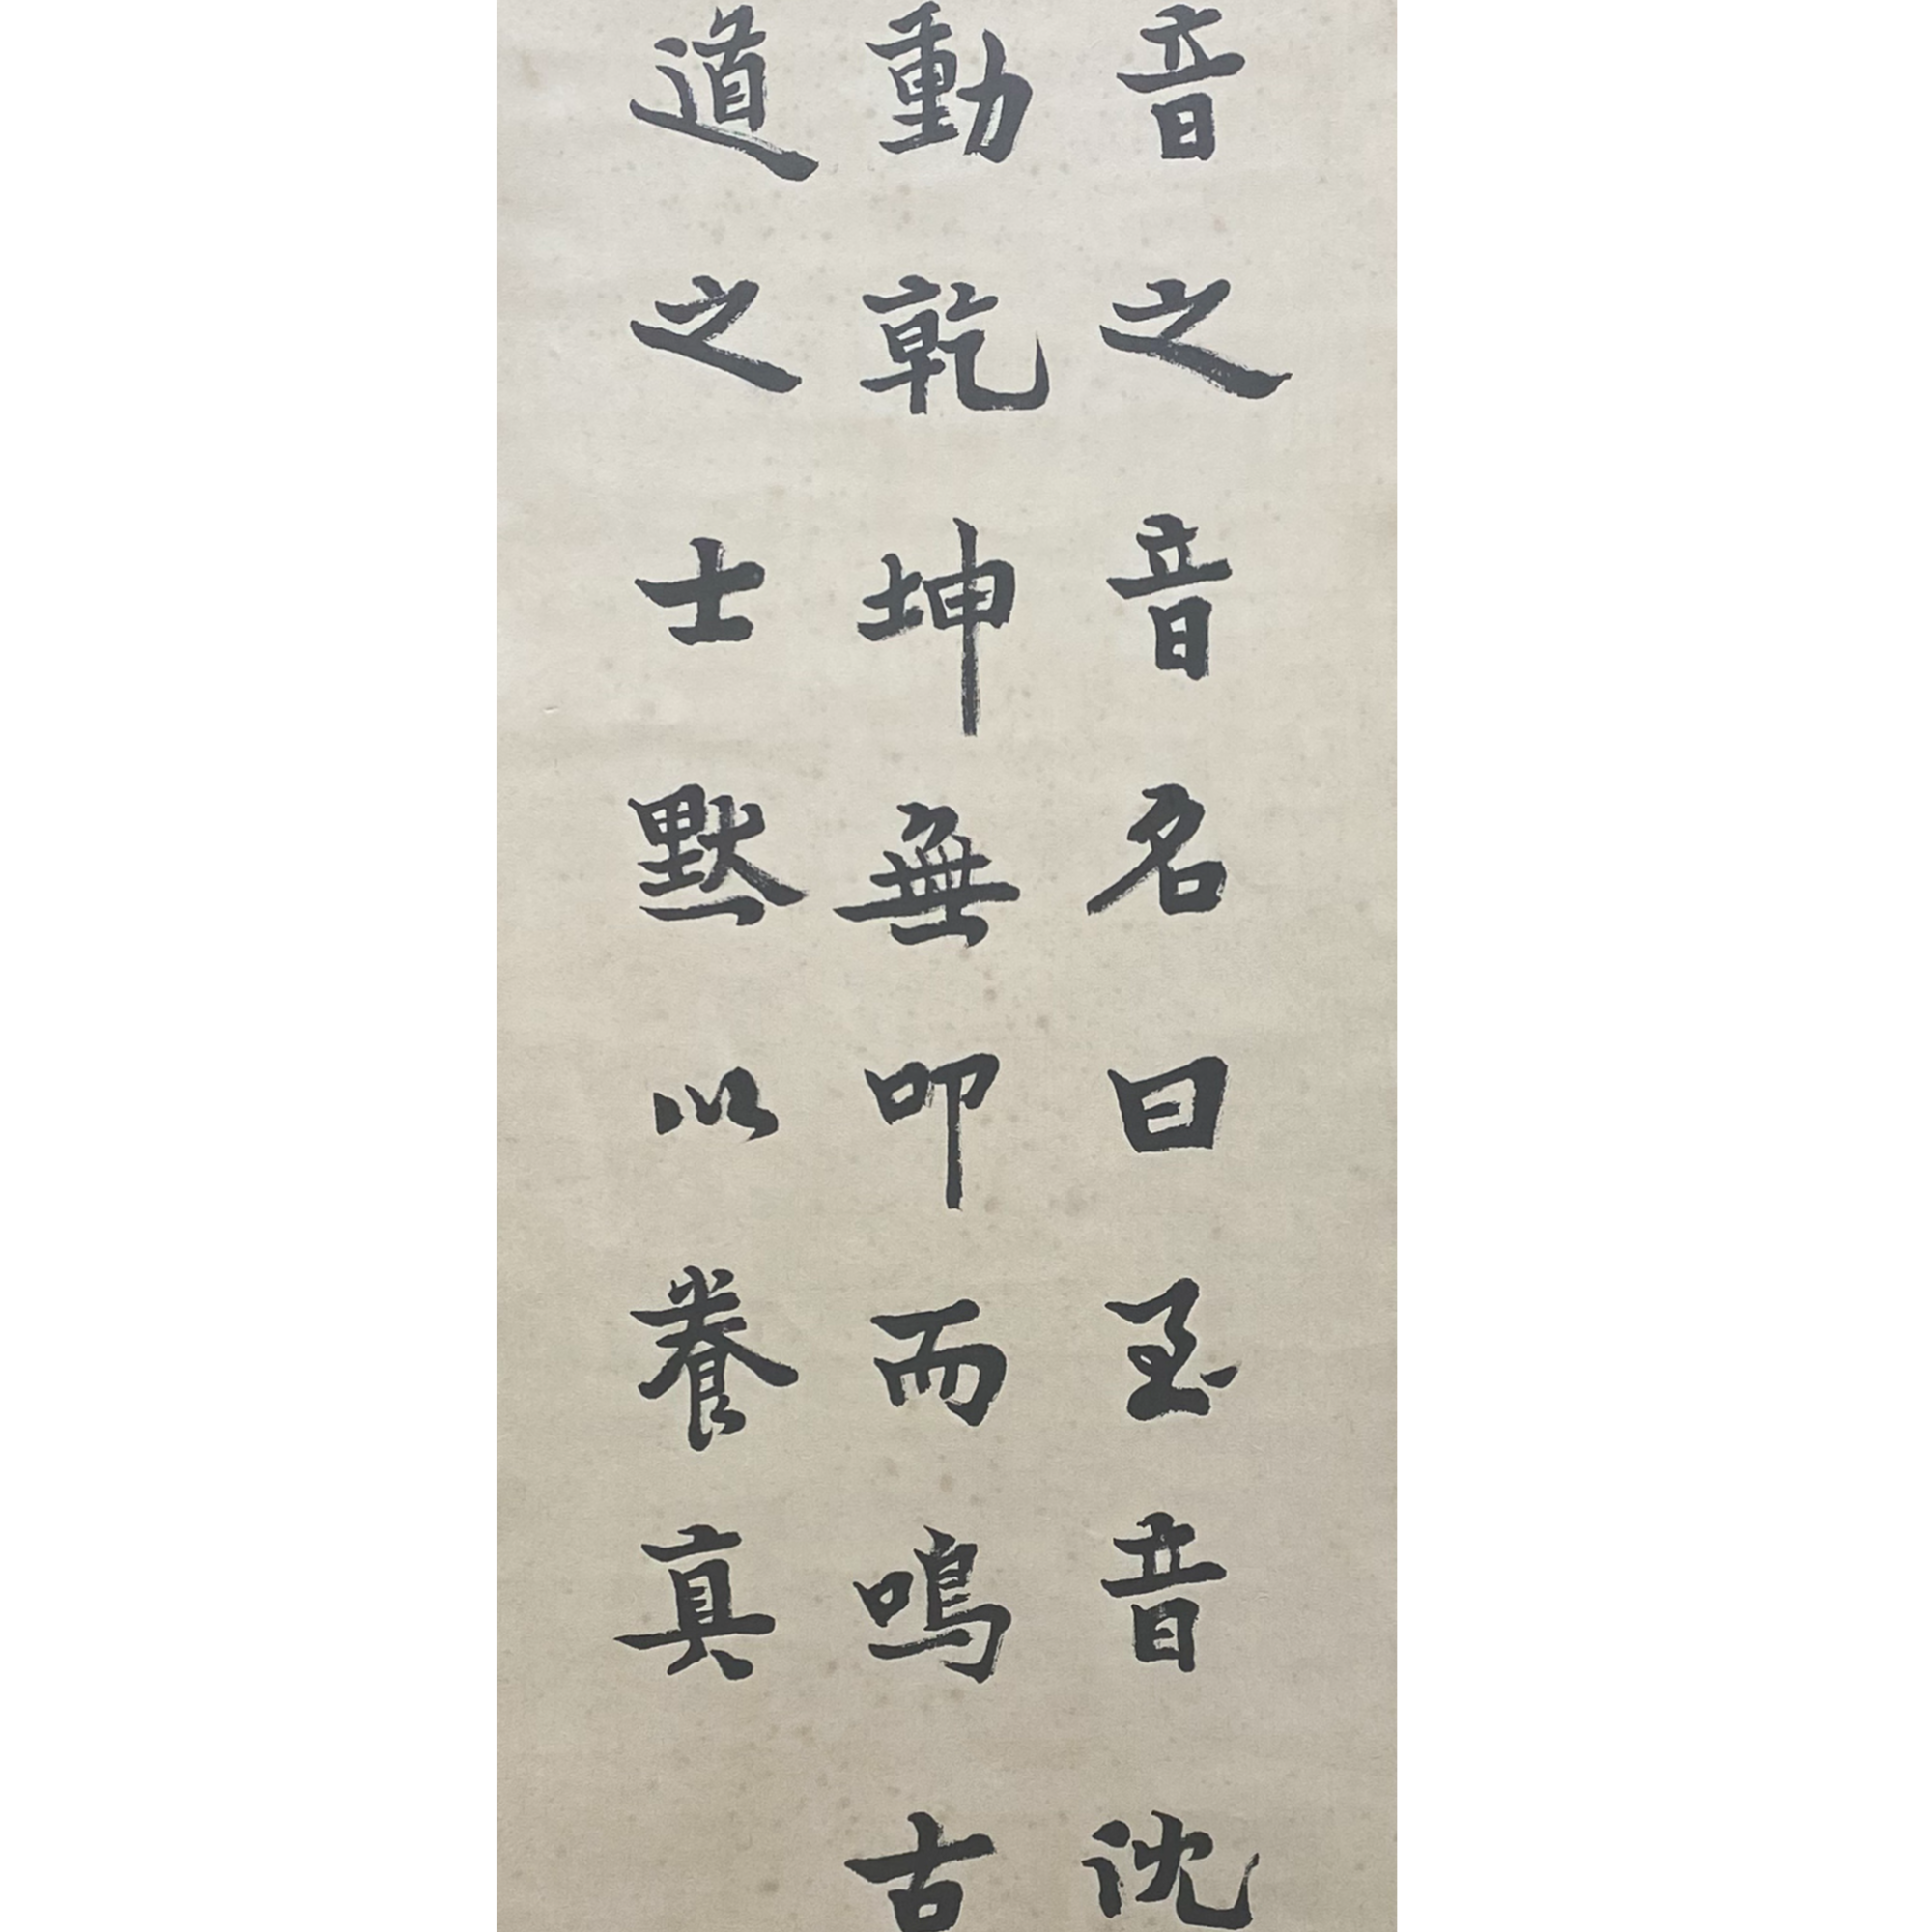 音之音名曰至音沈
動乾坤無叩而鳴古
道之士默以養真